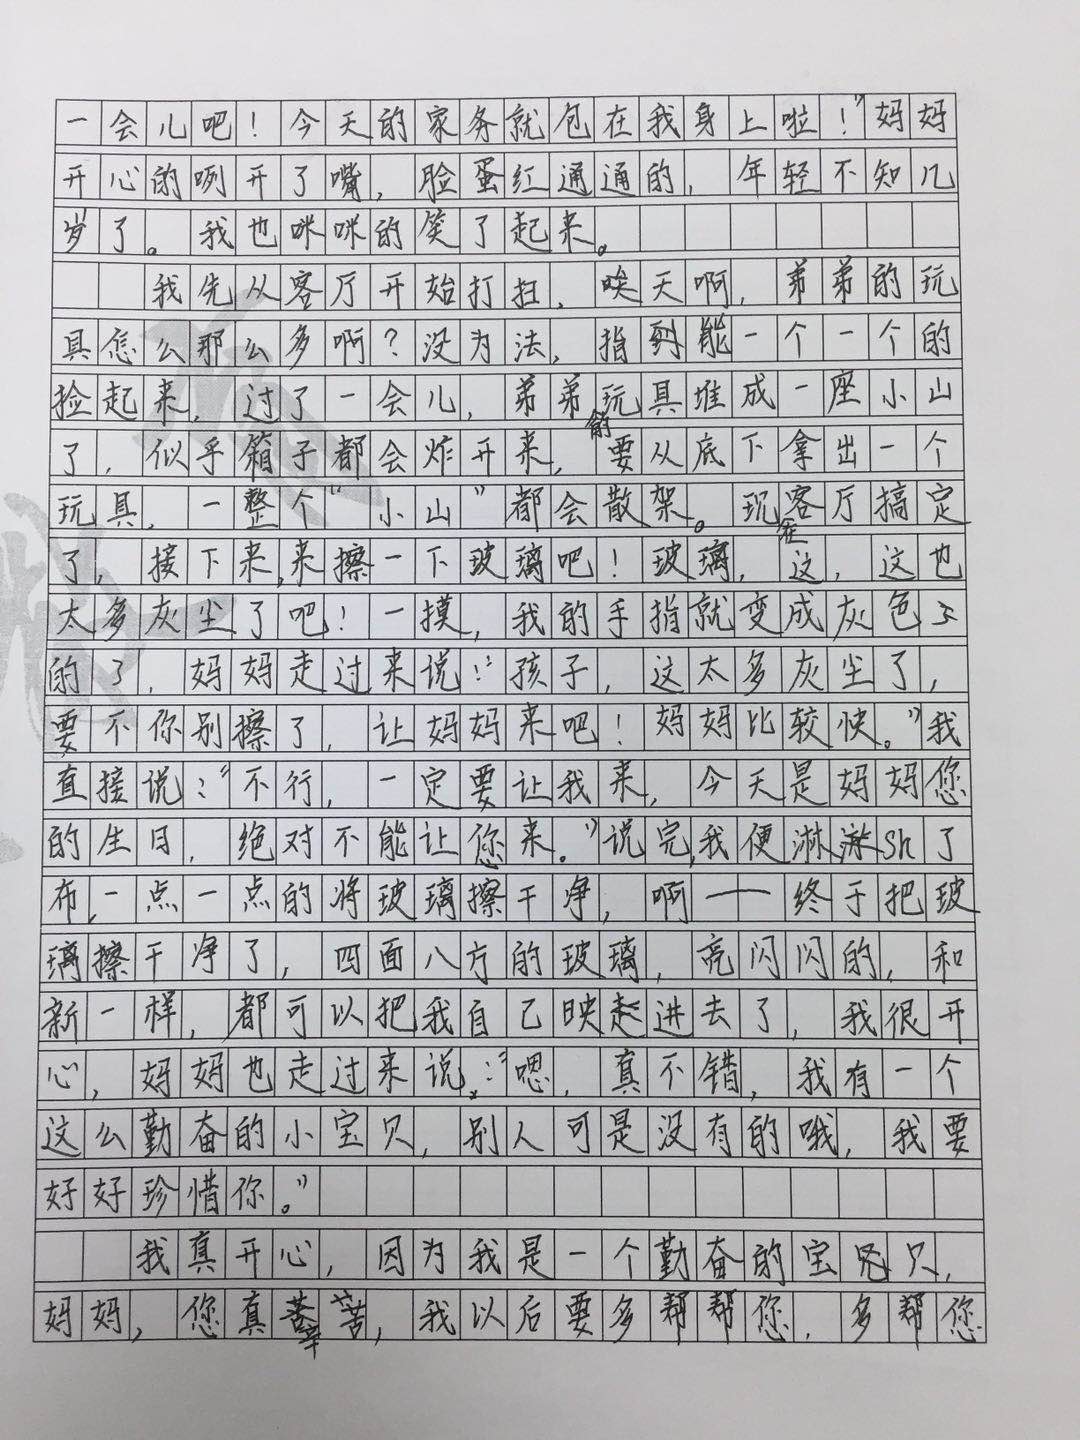 一会儿吧！今天的家务就包在我身上啦！”妈妈
开心的咧开了嘴，脸蛋红通通的，年轻不知几
岁了。我也咪咪的笑了起来。
我先从客厅开始打扫，唉天啊，弟弟的玩
具怎么那么多啊？没为法，指到能一个一个的
捡起来，过了一会儿，弟弟玩具堆成一座小山
了，似乎箱子都会炸开来，要从底下拿出一个
玩具，一整个“小山”都会散架。现在客厅搞定
了，接下来,来擦一下玻璃吧！玻璃，这，这也
太多灰尘了吧！一摸，我的手指就变成灰色
的了，妈妈走过来说：“孩子，这太多灰尘了，
要不你别擦了，让妈妈来吧！妈妈比较快。”我
直接说：“不行，一定要让我来，今天是妈妈您
的生日，绝对不能让您来。”说完,我便淋淋sh了
布,一点一点的将玻璃擦干净，啊——终于把玻
璃擦干净了，四面八方的玻璃，亮闪闪的，和
新一样，都可以把我自己映进去了，我很开
心，妈妈也走过来说：“嗯，真不错，我有一个
这么勤奋的小宝贝，别人可是没有的哦，我要
好好珍惜你。”
我真开心，因为我是一个勤奋的宝贝，
妈妈，您真辛苦，我以后要多帮帮您，多帮您